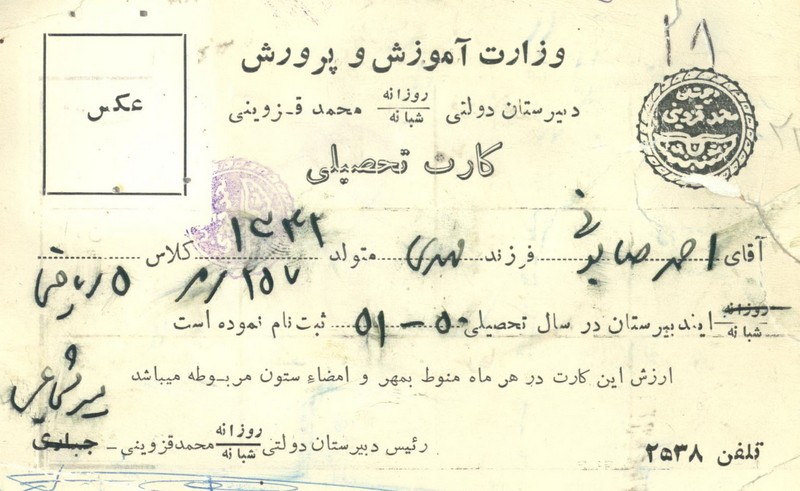 ۱۸
وزارت آموزش و پرورش
عکس
دبیرستان دولتی روزانه شبانه محمد قزوینی
کارت تحصیلی
آقای احمد صابونی فرزند مهدی متولد ۱۳۳۲ کلاس
۵ ریاضی
روزانه شبانه ایندبیرستان در سال تحصیلی ۵۰ – ۵۱ ثبت نام نموده است
ارزش این کارت در هر ماه منوط بمهر و امضاء ستون مربوطه میباشد
رئیس دبیرستان دولتی روزانه شبانه محمدقزوینی - جباری
تلفن ۲۵۳۸